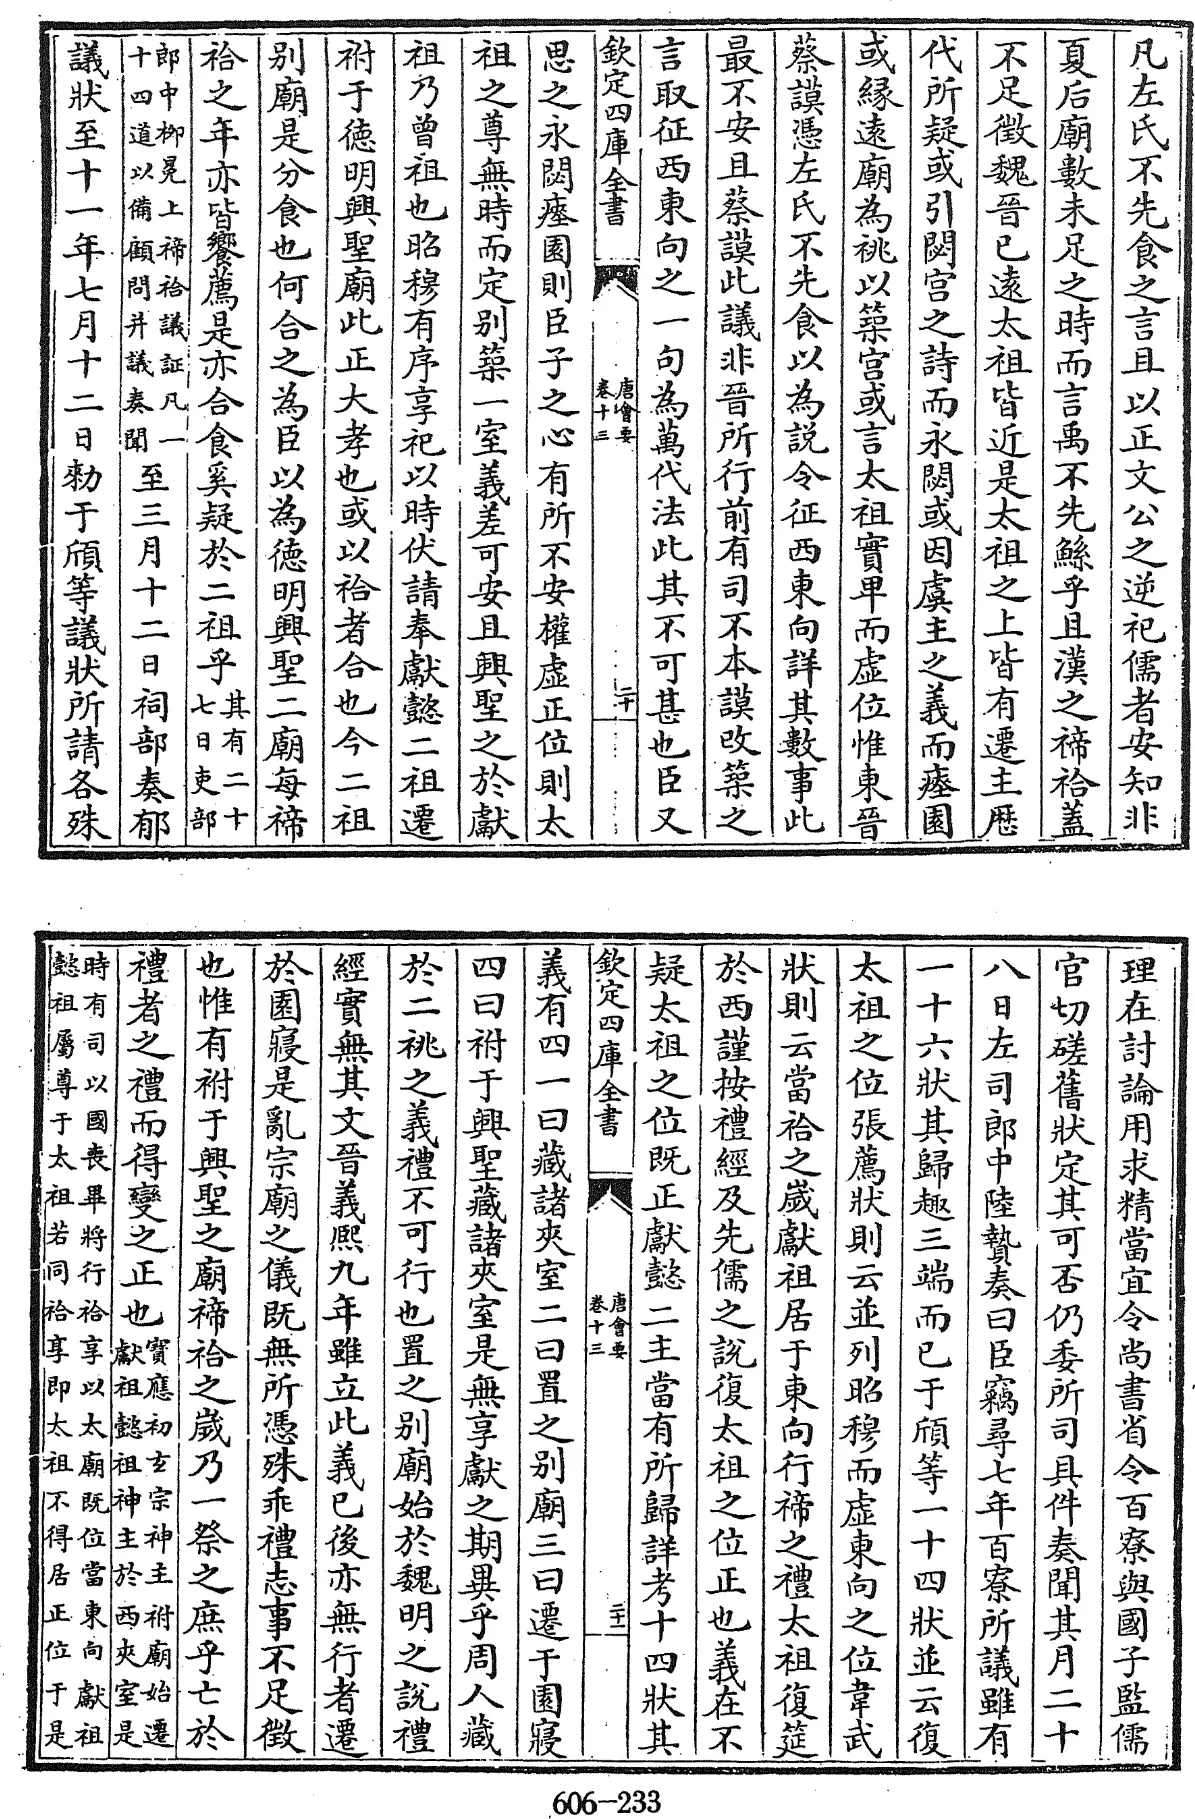 凡左氏不先食之言且以正文公之逆祀儒者安知非
夏后廟數未足之時而言禹不先鯀乎且漢之禘祫蓋
不足徵魏晉已遠太祖皆近是太祖之上皆有遷主歴
代所疑或引閟宫之詩而永閟或因虞主之義而瘞園
或緣遠廟為祧以築宫或言太祖實卑而虛位惟東晉
蔡謨憑左氏不先食以為説令征西東向詳其數事此
最不安且蔡謨此議非晉所行前有司不本謨改築之
言取征西東向之一句為萬代法此其不可甚也臣又
欽定四庫全書
唐會要
卷十三
二十
思之永閟瘞園則臣子之心有所不安權虛正位則太
祖之尊無時而定别築一室義差可安且興聖之於獻
祖乃曾祖也昭穆有序享祀以時伏請奉獻懿二祖遷
祔于徳明興聖廟此正大孝也或以祫者合也今二祖
别廟是分食也何合之為臣以為徳明興聖二廟每禘
祫之年亦皆饗薦是亦合食奚疑於二祖乎其有二十
七日吏部
郎中栁冕上禘祫議証凡一
十四道以備顧問并議奏聞至三月十二日祠部奏郁
議狀至十一年七月十二日勅于頎等議狀所請各殊
理在討論用求精當宜令尚書省令百寮與國子監儒
官切磋舊狀定其可否仍委所司具件奏聞其月二十
八日左司郎中陸贄奏曰臣竊尋七年百寮所議雖有
一十六狀其歸趣三端而已于頎等一十四狀並云復
太祖之位張薦狀則云並列昭穆而虛東向之位韋武
狀則云當祫之歳獻祖居于東向行禘之禮太祖復筵
於西謹按禮經及先儒之說復太祖之位正也義在不
疑太祖之位既正獻懿二主當有所歸詳考十四狀其
欽定四庫全書
唐會要
卷十三
二十一
義有四一曰藏諸夾室二曰置之别廟三曰遷于園寢
四曰祔于興聖藏諸夾室是無享獻之期異乎周人藏
於二祧之義禮不可行也置之别廟始於魏明之說禮
經實無其文晉義熙九年雖立此義已後亦無行者遷
於園寢是亂宗廟之儀既無所憑殊乖禮志事不足徵
也惟有祔于興聖之廟禘祫之歳乃一祭之庶乎亡於
禮者之禮而得變之正也寳應初玄宗神主祔廟始遷
獻祖懿祖神主於西夾室是
時有司以國喪畢將行祫享以太廟既位當東向獻祖
懿祖屬尊于太祖若同祫享即太祖不得居正位于是
606-233